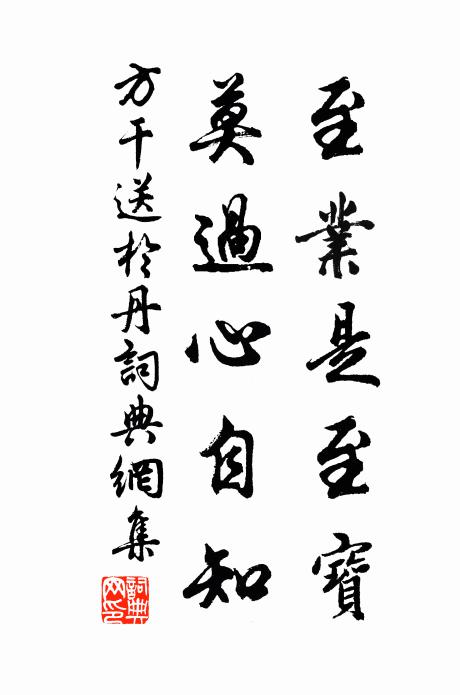 至業是至寶
莫過心自知
方干送於丹詞典網集
詞典網印